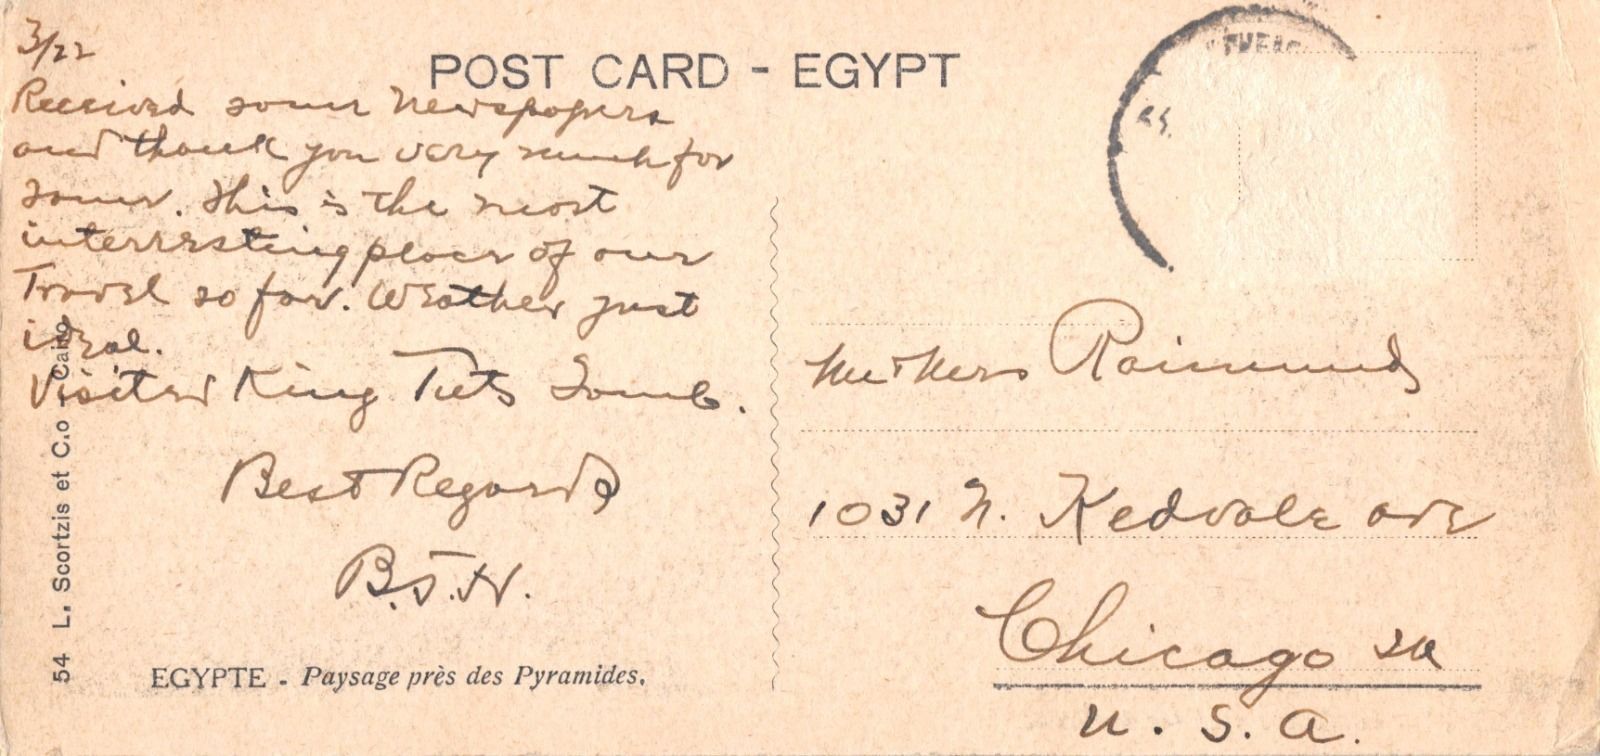 POST CARD - EGYPT
3/22
Received some newspapers
and thank you very much for
same. This is the most
interesting place of our
Travel so far. Weather just
ideal.
Visited King Tuts Tomb.
Best Regards
B.J.H.
EGYPTE - Paysage près des Pyramides.
54 L. Scortzis et C.o - Cairo
Mr & Mrs Raimund
1031 N. Kedvale ave
Chicago Ill
U. S. A.